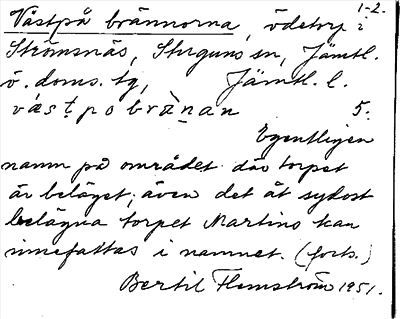 1-2.
Västpå brännorna, ödetorp i
Strömsnäs, Stuguns sn, Jämtl.
ö. doms. tg, Jämtl. l.
vást̩pobrànan 5.
Egentligen
namn på området där torpet
är beläget; även det åt sydost
belägna torpet Martins kan
innefattas i namnet. (forts.)
Bertil Flemström 1951.